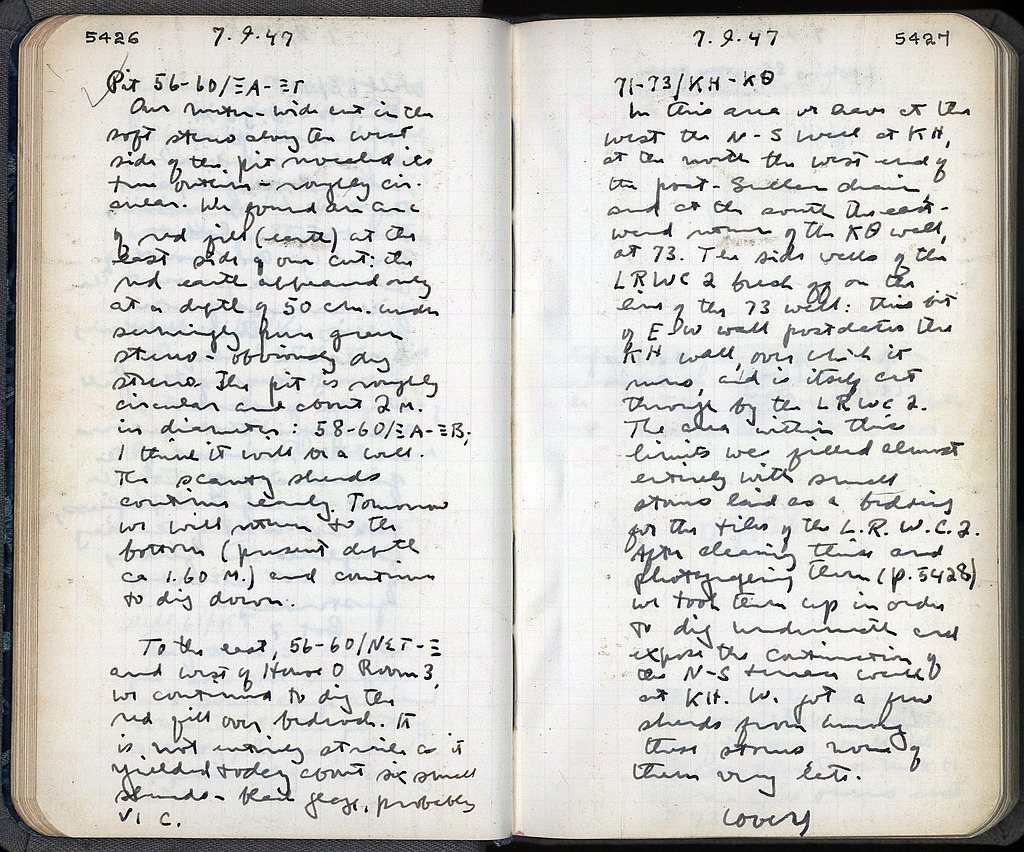 5426
7.9.47
Pit 56-60/ΞA-ΞΓ
Our meter-wide cut in the
soft stereo along the west
side of the pit revealed its
true outline - roughly cir-
cular. We found an arc
of red fill (earth) at the
east side of our cut: the
red earth appeared only
at a depth of 50 cm. under
seemingly pure green
stereo - obviously dug
stereo. The pit is roughly
circular and about 2 M.
in diameter: 58-60/ΞA-ΞB;
I think it will be a well.
The scanty sherds
continue early. Tomorrow
we will return to the
bottom (present depth
ca 1.60 M.) and continue
to dig down.
To the east, 56-60/NΣT-Ξ
and west of House O Room 3,
we continued to dig the
red fill over bedrock. It
is not entirely sterile as it
yielded today about six small
sherds - black glaze, probably
V. C.
7.9.47
5427
71-73/KH-KΘ
In this area we have at the
west the N-S wall at KH,
at the north the west end of
the post-Sullan drain,
and at the south the east-
ward return of the KΘ wall,
at 73. The side walls of the
LRWC 2 break off on the
line of the 73 wall: this bit
of E-W wall postdates the
KH wall, over which it
runs, and is itself cut
through by the LRWC 2.
The area within these
limits was filled almost
entirely with small
stones laid as a bedding
for the tiles of the L.R.W.C.2.
After cleaning these and
photographing them (p.5428)
we took them up in order
to dig underneath and
expose the continuation of
the N-S terrace wall
at KH. We got a few
sherds from among
these stones none of
them very late.
(over)